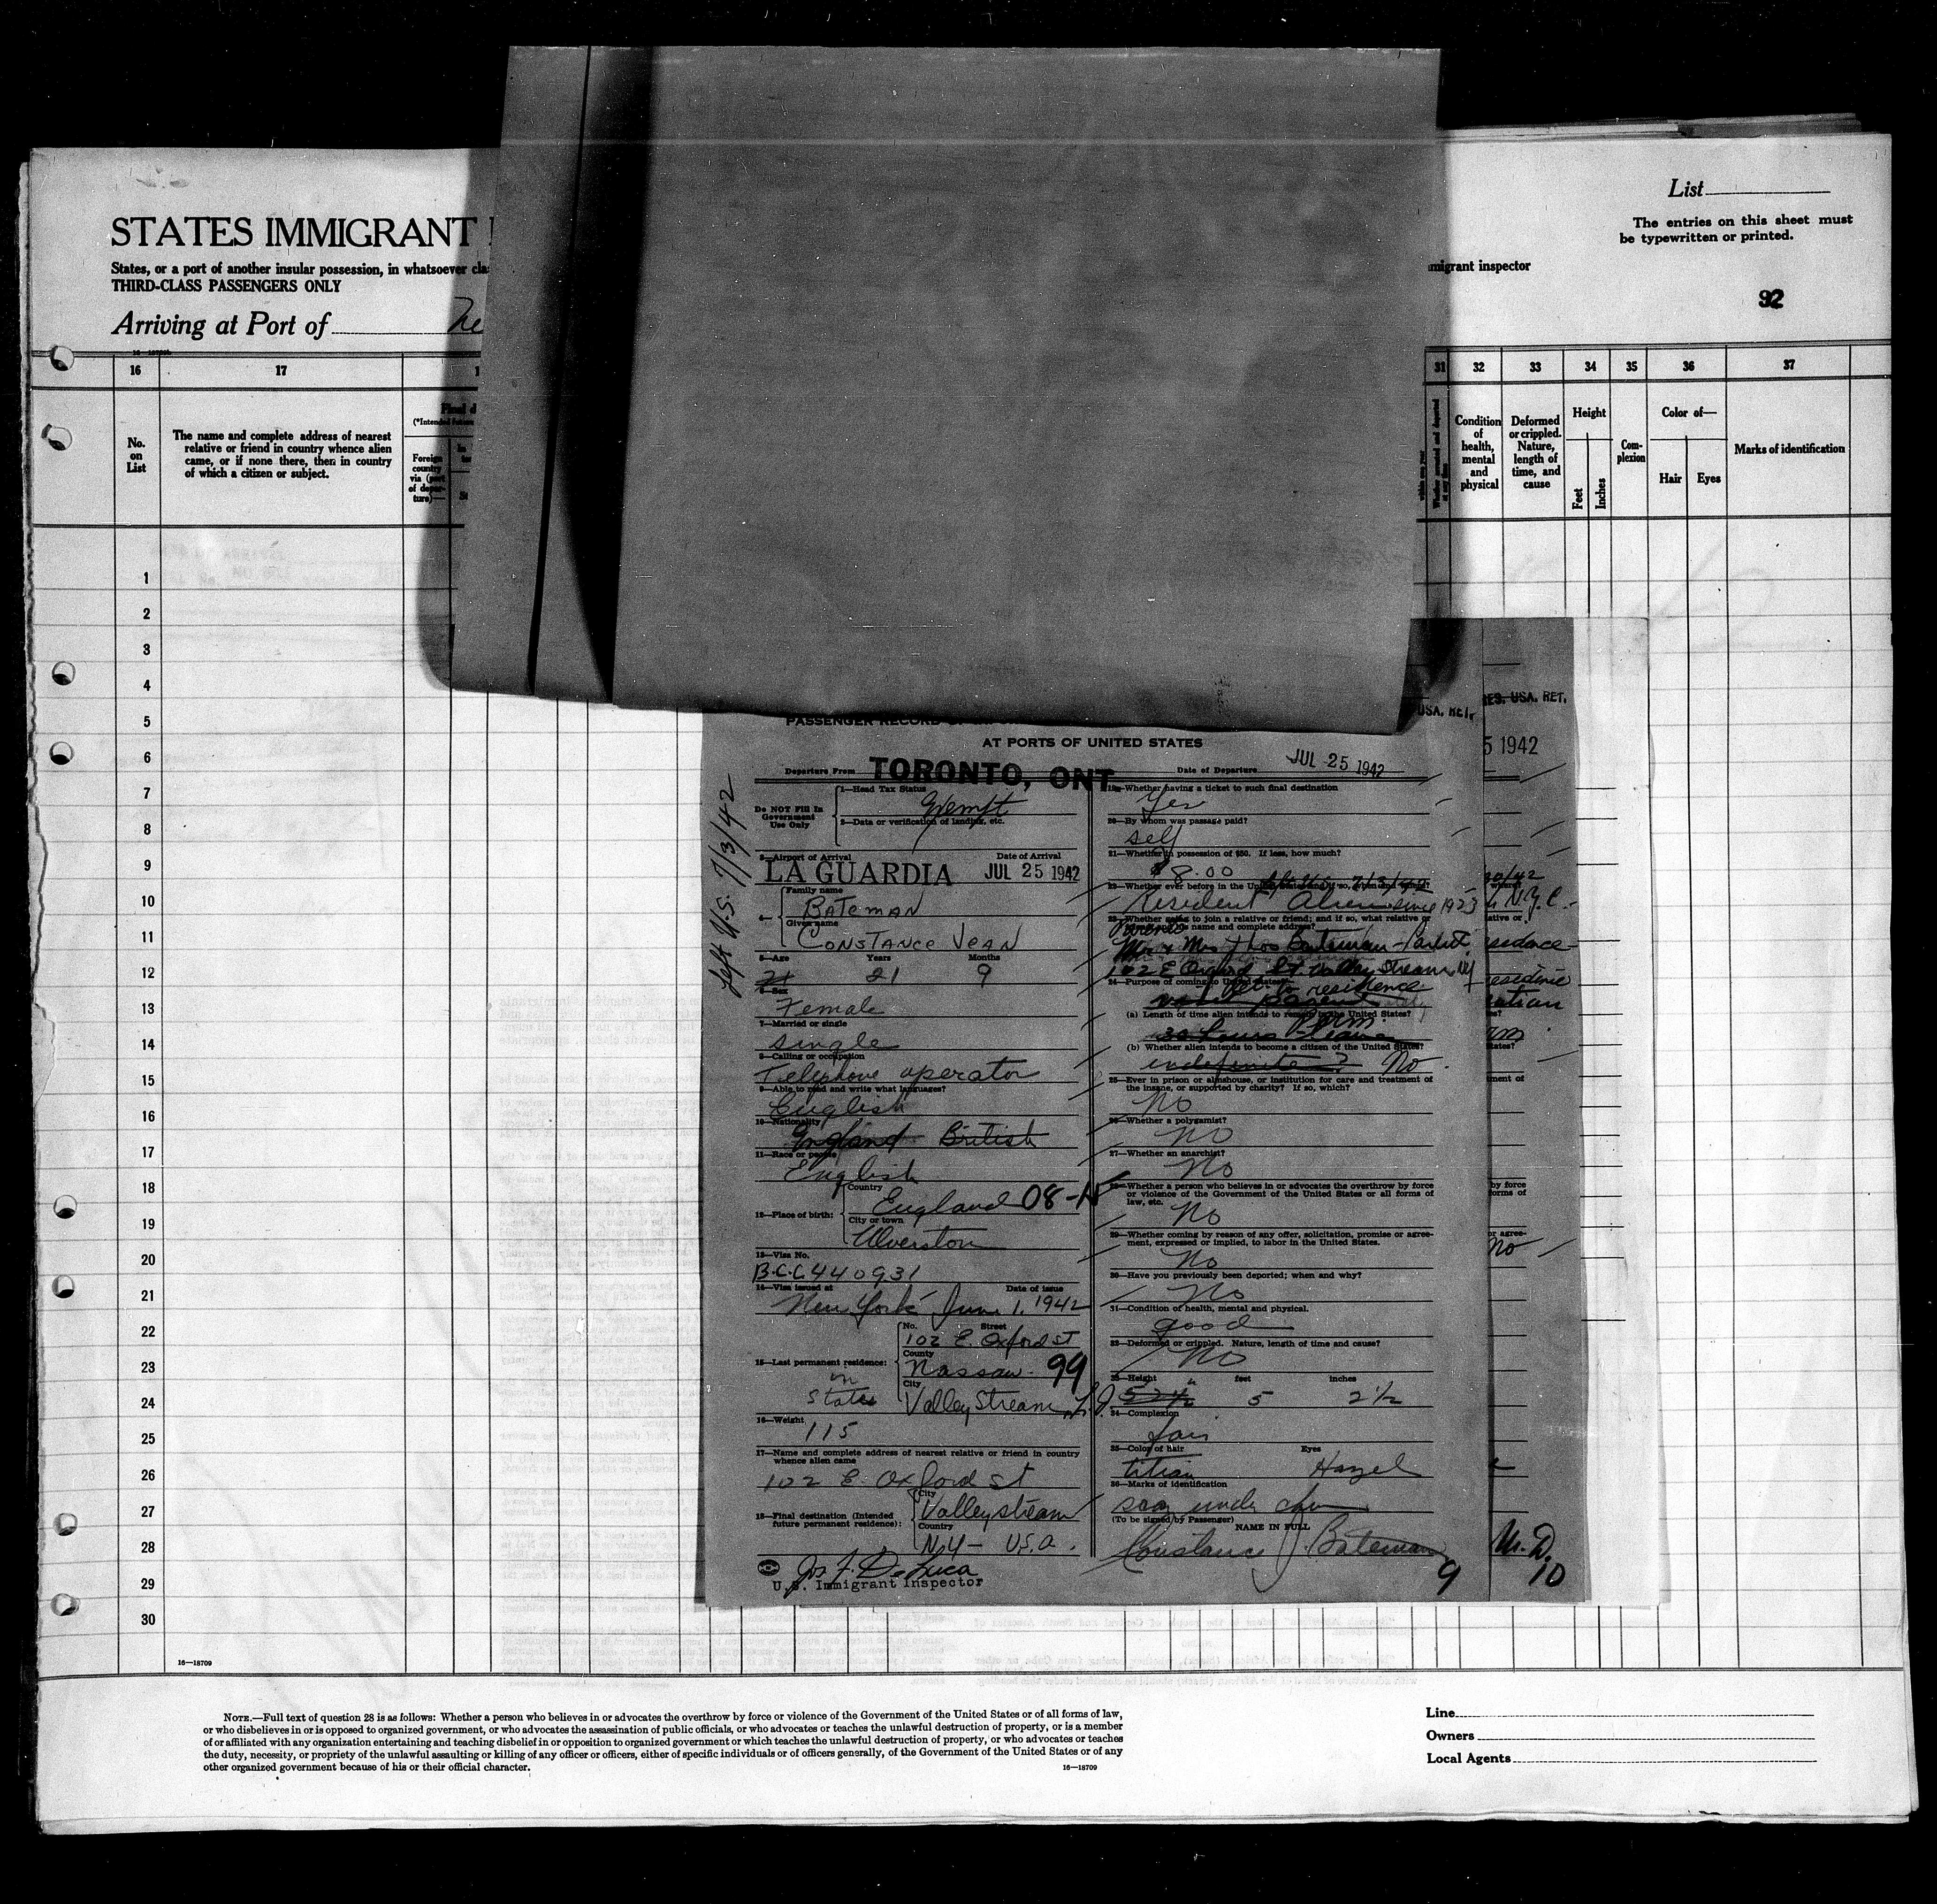 List
The entries on this sheet must
be typewritten or printed.
STATES IMMIGRANT
States, or a port of another insular possession, in whatsoever cla
THIRD-CLASS PASSENGERS ONLY
migrant inspector
92
Arriving at Port of Ne
16 17 31 32 33 34 35 36 37
No. on List
The name and complete address of nearest
relative or friend in country whence alien
came, or if none there, then in country
of which a citizen or subject.
Final d
(*Intended future
Foreign country via (port of depar-ture)—
Whether arrested and deported at any time
Condition of health, mental and physical
Deformed or crippled. Nature, length of time, and cause
Height
Feet
Inches
Com-plexion
Color of—
Hair
Eyes
Marks of identification
1
2
3
4
5
6
7
8
9
10
11
12
13
14
15
16
17
18
19
20
21
22
23
24
25
26
27
28
29
30
16—18709
PASSENGER RECORD
USA. RET.
RES. USA. RET.
5 1942
AT PORTS OF UNITED STATES
Departure From TORONTO, ONT
Date of Departure JUL 25 1942
left U.S. 7/3/42
Do NOT Fill In
Government
Use Only
1—Head Tax Status
Exempt
2—Data or verification of landing, etc.
3—Airport of Arrival
Date of Arrival
LA GUARDIA JUL 25 1942
4—
Family name
BATEMAN
Given name
CONSTANCE JEAN
5—Age Years Months
21 21 9
6—Sex
Female
7—Married or single
single
8—Calling or occupation
Telephone operator
9—Able to read and write what languages?
English
10—Nationality
England British
11—Race or people
English
12—Place of birth:
Country
England 08-N
City or town
Ulverston
13—Visa No.
B.C.C 440931
14—Visa issued at Date of issue
New York June 1, 1942
15—Last permanent residence:
in
States
No. Street
102 E. Oxford St
County
Nassau. 99
City
Valley Stream L.I.
16—Weight
115
17—Name and complete address of nearest relative or friend in country
whence alien came
102 E. Oxford St
18—Final destination (Intended
future permanent residence):
City
Valleystream
Country
N.Y— U.S.A.
Jos F. DeLuca
U.S. Immigrant Inspector
19—Whether having a ticket to such final destination
Yes
20—By whom was passage paid?
self
21—Whether in possession of $50. If less, how much?
$8.00
22—Whether ever before in the United States and if so, when and where?
Resident Alien since 1923
23—Whether going to join a relative or friend; and if so, what relative or
name and complete address?
Parents
Mr & Mrs Thos Bateman
102 E Oxford St Valley Stream
24—Purpose of coming to United States?
Ret. to residence
(a) Length of time alien intends to remain in the United States?
Perm.
(b) Whether alien intends to become a citizen of the United States?
indefinite? No.
25—Ever in prison or almshouse, or institution for care and treatment of
the insane, or supported by charity? If so, which?
No
26—Whether a polygamist?
No
27—Whether an anarchist?
No
28—Whether a person who believes in or advocates the overthrow by force
or violence of the Government of the United States or all forms of
law, etc.
No
29—Whether coming by reason of any offer, solicitation, promise or agree-
ment, expressed or implied, to labor in the United States.
No
30—Have you previously been deported; when and why?
No
31—Condition of health, mental and physical.
good
32—Deformed or crippled. Nature, length of time and cause?
No
33—Height feet inches
5 2½
34—Complexion
fair
35—Color of hair Eyes
titian Hazel
36—Marks of identification
scar under chin
(To be signed by Passenger)
NAME IN FULL
Constance J. Bateman
9
N.Y.C.
No
M.D.
10
NOTE.—Full text of question 28 is as follows: Whether a person who believes in or advocates the overthrow by force or violence of the Government of the United States or of all forms of law,
or who disbelieves in or is opposed to organized government, or who advocates the assassination of public officials, or who advocates or teaches the unlawful destruction of property, or is a member
of or affiliated with any organization entertaining and teaching disbelief in or opposition to organized government or which teaches the unlawful destruction of property, or who advocates or teaches
the duty, necessity, or propriety of the unlawful assaulting or killing of any officer or officers, either of specific individuals or of officers generally, of the Government of the United States or of any
other organized government because of his or their official character.
16—18709
Line
Owners
Local Agents